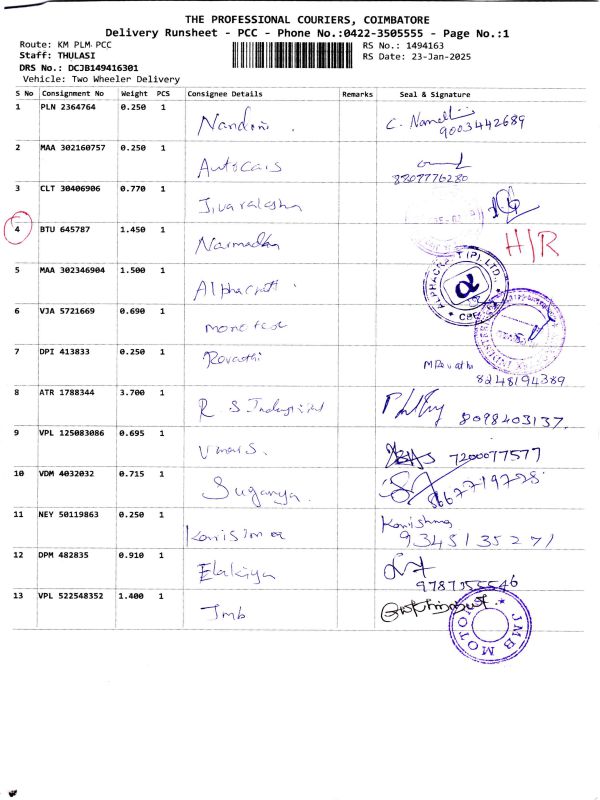 THE PROFESSIONAL COURIERS, COIMBATORE
Delivery Runsheet - PCC - Phone No.:0422-3505555 - Page No.:1
Route: KM PLM PCC
RS No.: 1494163
Staff: THULASI
RS Date: 23-Jan-2025
DRS No.: DCJB149416301
Vehicle: Two Wheeler Delivery
S No Consignment No Weight PCS Consignee Details Remarks Seal & Signature
1 PLN 2364764 0.250 1 Nandini C. 9003442689
2 MAA 302160757 0.250 1 Autocars 8807776280
3 CLT 30406906 0.770 1
4 BTU 645787 1.450 1 Narmadha H/R
5 MAA 302346904 1.500 1 Alphacraft ALPHACRAFT (P) LTD. α
6 VJA 5721669 0.690 1
7 DPI 413833 0.250 1 Revathi M Revathi 8248194389
8 ATR 1788344 3.700 1 R S Industrial 8098403137.
9 VPL 125083086 0.695 1 Umar S. 7200077577
10 VDM 4032032 0.715 1 Suganya. 8667719728
11 NEY 50119863 0.250 1 Kanishma 9345135271
12 DPM 482835 0.910 1 Elakiya 9787355546
13 VPL 522548352 1.400 1 Jmb JMB MOTO